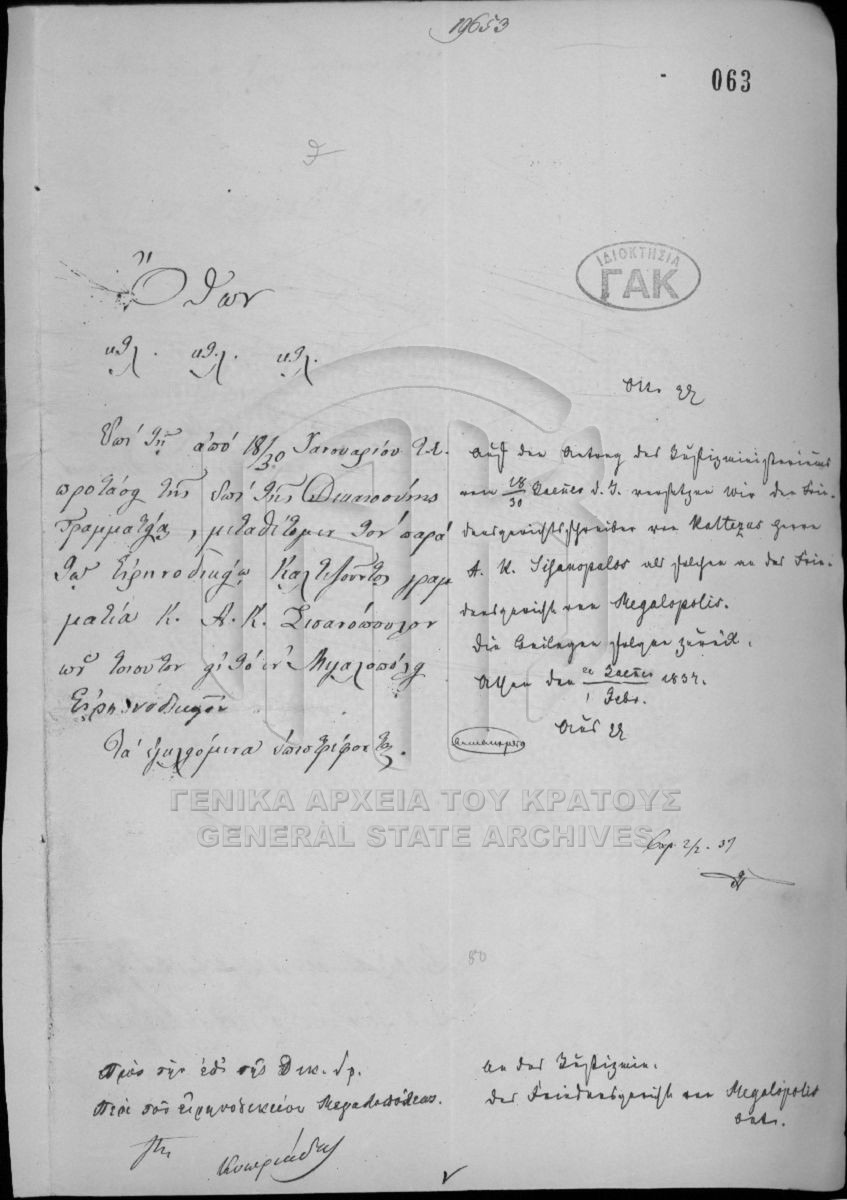 19653
063
ΙΔΙΟΚΤΗΣΙΑ
ΓΑΚ
Ὄθων
κτλ. κτλ. κτλ.
Ἐπὶ τῇ ἀπὸ 18/30 Ἰανουαρίου τ.ἔ.
προτάσει τῆς ἐπὶ τῆς Δικαιοσύνης
Γραμματείας, μεταθέτομεν τὸν παρὰ
τῷ Εἰρηνοδικείῳ Καλτεζοῦντος γραμ
ματέα Κ. Α. Κ. Σισανόπουλον
ὡς τοιοῦτον εἰς τὸ ἐν Μεγαλοπόλει
Εἰρηνοδικεῖον
Τὰ ἐγκλειόμενα ἐπιστρέφονται.
Otto
Auf den Antrag des Justizministeriums
vom 18/30 Jaenner d. J. versetzen wir den Frie-
densgerichtsschreiber von Kaltezas Herrn
A. K. Sisanopulos als solchen an das Frie-
densgericht von Megalopolis.
Die Beilagen folgen zurück.
Athen den Jaenner 1837.
1 Febr.
ΓΕΝΙΚΑ ΑΡΧΕΙΑ ΤΟΥ ΚΡΑΤΟΥΣ
GENERAL STATE ARCHIVES
2/2. 37
80
Πρὸς τὴν ἐπὶ τῆς Δικ. Γρ.
Περὶ τοῦ εἰρηνοδικείου Μεγαλοπόλεως.
An das Justizmin.
Das Friedensgericht von Megalopolis
betr.